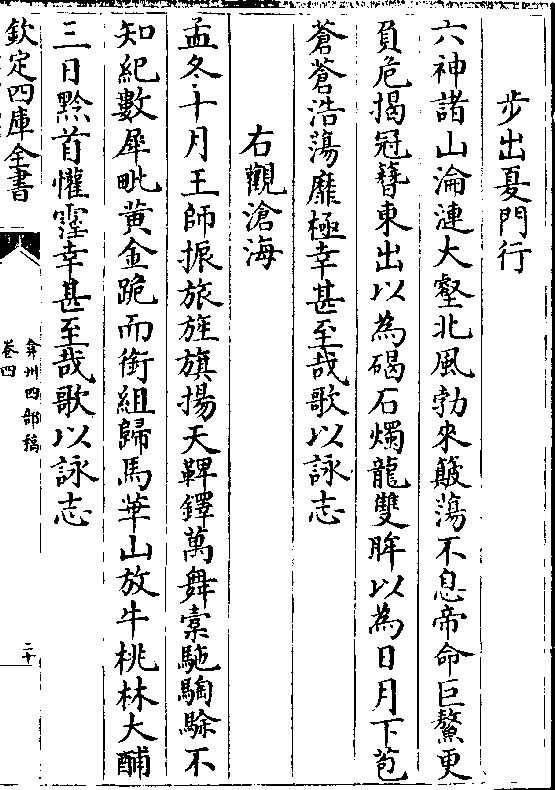 步出夏門行
六神諸山淪漣大壑北風勃來簸蕩不息帝命巨鰲更
負危揭冠簪東出以為碣石燭龍雙眸以為日月下苞
蒼蒼浩蕩靡極幸甚至哉歌以詠志
右觀滄海
孟冬十月王師振旅旌旗揚天鞞鐸萬舞橐駞騊駼不
知紀數犀毗黃金跪而銜組歸馬華山放牛桃林大酺
三日黔首懽䨥幸甚至哉歌以詠志
欽定四庫全書
弇州四部稿
卷四
二十